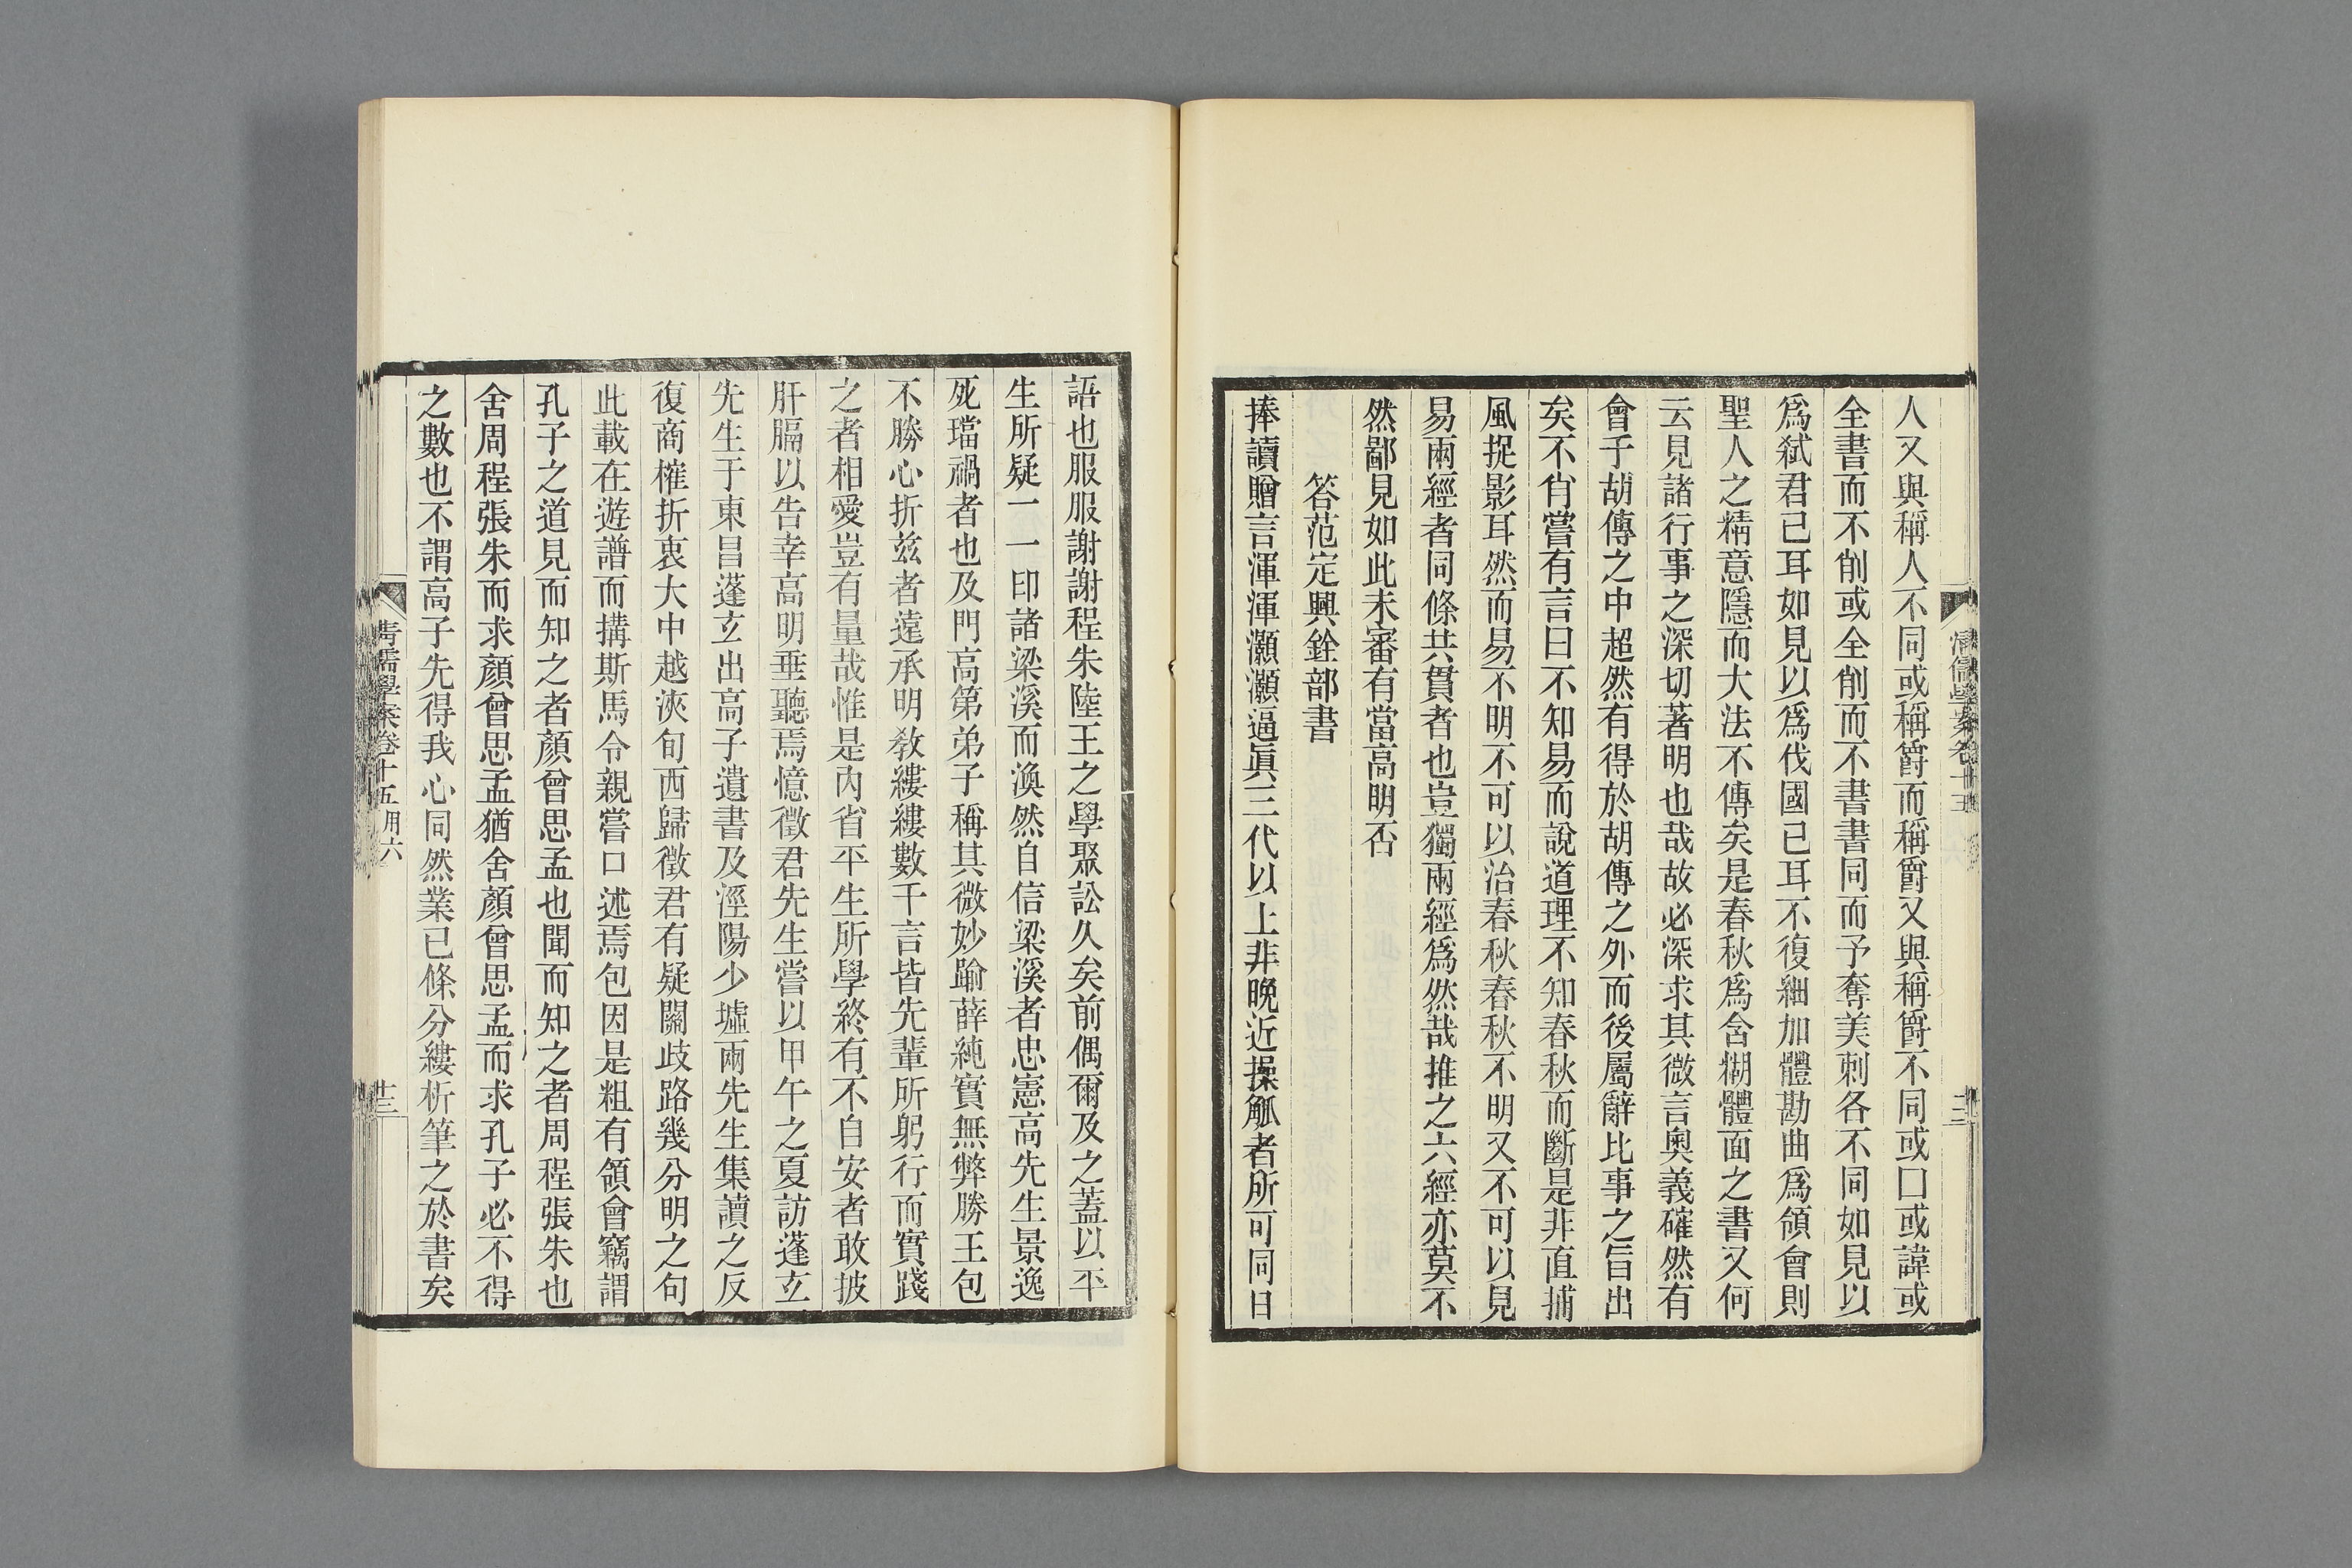 人又與稱人不同或稱爵而稱爵又與稱爵不同或囗或諱或
全書而不削或全削而不書書同而予奪美刺各不同如見以
爲弑君已耳如見以爲伐國已耳不復細加體勘曲爲領會則
聖人之精意隱而大法不傳矣是春秋爲含糊體面之書又何
云見諸行事之深切著明也哉故必深求其微言奧義確然有
會于胡傳之中超然有得於胡傳之外而後屬辭比事之旨出
矣不肖嘗有言曰不知易而說道理不知春秋而斷是非直捕
風捉影耳然而易不明不可以治春秋春秋不明又不可以見
易兩經者同條共貫者也豈獨兩經爲然哉推之六經亦莫不
然鄙見如此未審有當高明否
答范定興銓部書
捧讀贈言渾渾灝灝逼眞三代以上非晚近操觚者所可同日
語也服服謝謝程朱陸王之學聚訟久矣前偶爾及之蓋以平
生所疑一一印諸梁溪而渙然自信梁溪者忠憲高先生景逸
死璫禍者也及門高第弟子稱其微妙踰薛純實無弊勝王包
不勝心折玆者遠承明敎縷縷數千言皆先輩所躬行而實踐
之者相愛豈有量哉惟是內省平生所學終有不自安者敢披
肝膈以告幸高明垂聽焉憶徵君先生嘗以甲午之夏訪蓬玄
先生于東昌蓬玄出高子遺書及涇陽少墟兩先生集讀之反
復商榷折衷大中越浹旬西歸徵君有疑關歧路幾分明之句
此載在遊譜而搆斯馬令親嘗口述焉包因是粗有領會竊謂
孔子之道見而知之者顏曾思孟也聞而知之者周程張朱也
舍周程張朱而求顏曾思孟猶舍顏曾思孟而求孔子必不得
之數也不謂高子先得我心同然業已條分縷析筆之於書矣
清儒學案卷十五 用六
十三